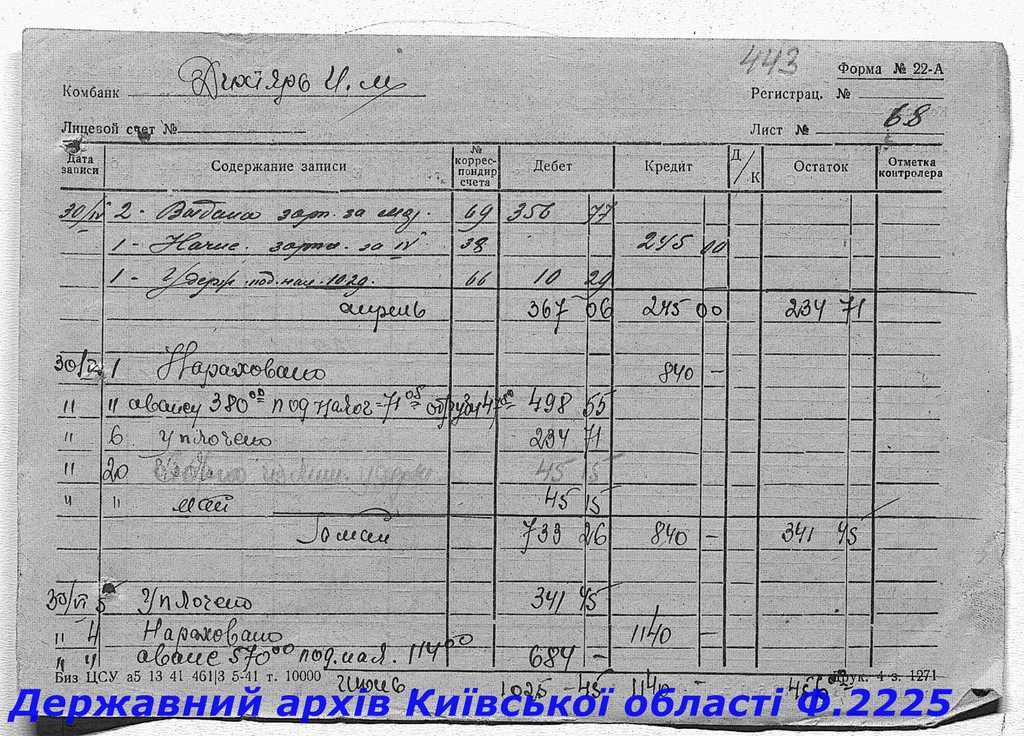 443
Форма № 22-А
Комбанк Дихтярь И. М
Регистрац. №
Лицевой счет №
Лист № 68
Дата записи Содержание записи № корреспондир счета Дебет Кредит Д/К Остаток Отметка контролера
30/IV 2 - за 69 356 77
1 - Начис. зарп. за IV 38 245 00
1 - Удерж. под. нал. 1029. 66 10 29
апрель 367 06 245 00 234 71
30/V 1 Нараховано 840 -
" " авансу 380 00 под налог 498 55
" 6 Уплочено 234 71
" 20 45 15
" " май 45 15
733 26 840 - 341 45
30/VI 5 Уплочено 341 45
" 4 Нараховано 1140 -
" 4 аванс 570 00 под. нал. 114 00 684 -
Биз ЦСУ а5 13 41 461|3 5-41 т. 10000 Друк. 4 з. 1271
июнь 1025 - 45 1140 -
Державний архів Київської області Ф.2225